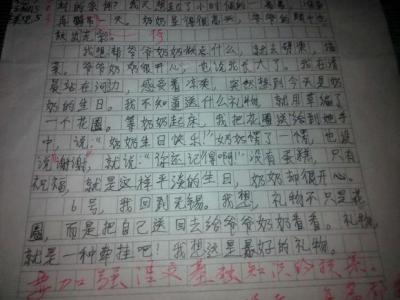 我想帮爷爷奶奶做点什么，就去锄菜，摘
菜。爷爷奶奶很开心，也说我长大了。我在清
晨站在河边，感受着凉爽，突然想到今天是奶
奶的生日。我不知道送什么礼物，就用草编了
一个花圈。等奶奶起床，我把花圈送给到她手
中，说：“奶奶生日快乐！”奶奶愣了一愣，也没
说“谢谢”，就说：“你还记得啊！”没有蛋糕，只有
祝福，就是这样平淡的生日，奶奶却很开心。
6号，我回到无锡。我想，礼物不只是花
圈，而是把自己送回去给爷爷奶奶看看。礼物，
就是一种牵挂吧！我想这是最好的礼物。
要加强语文基础知识的